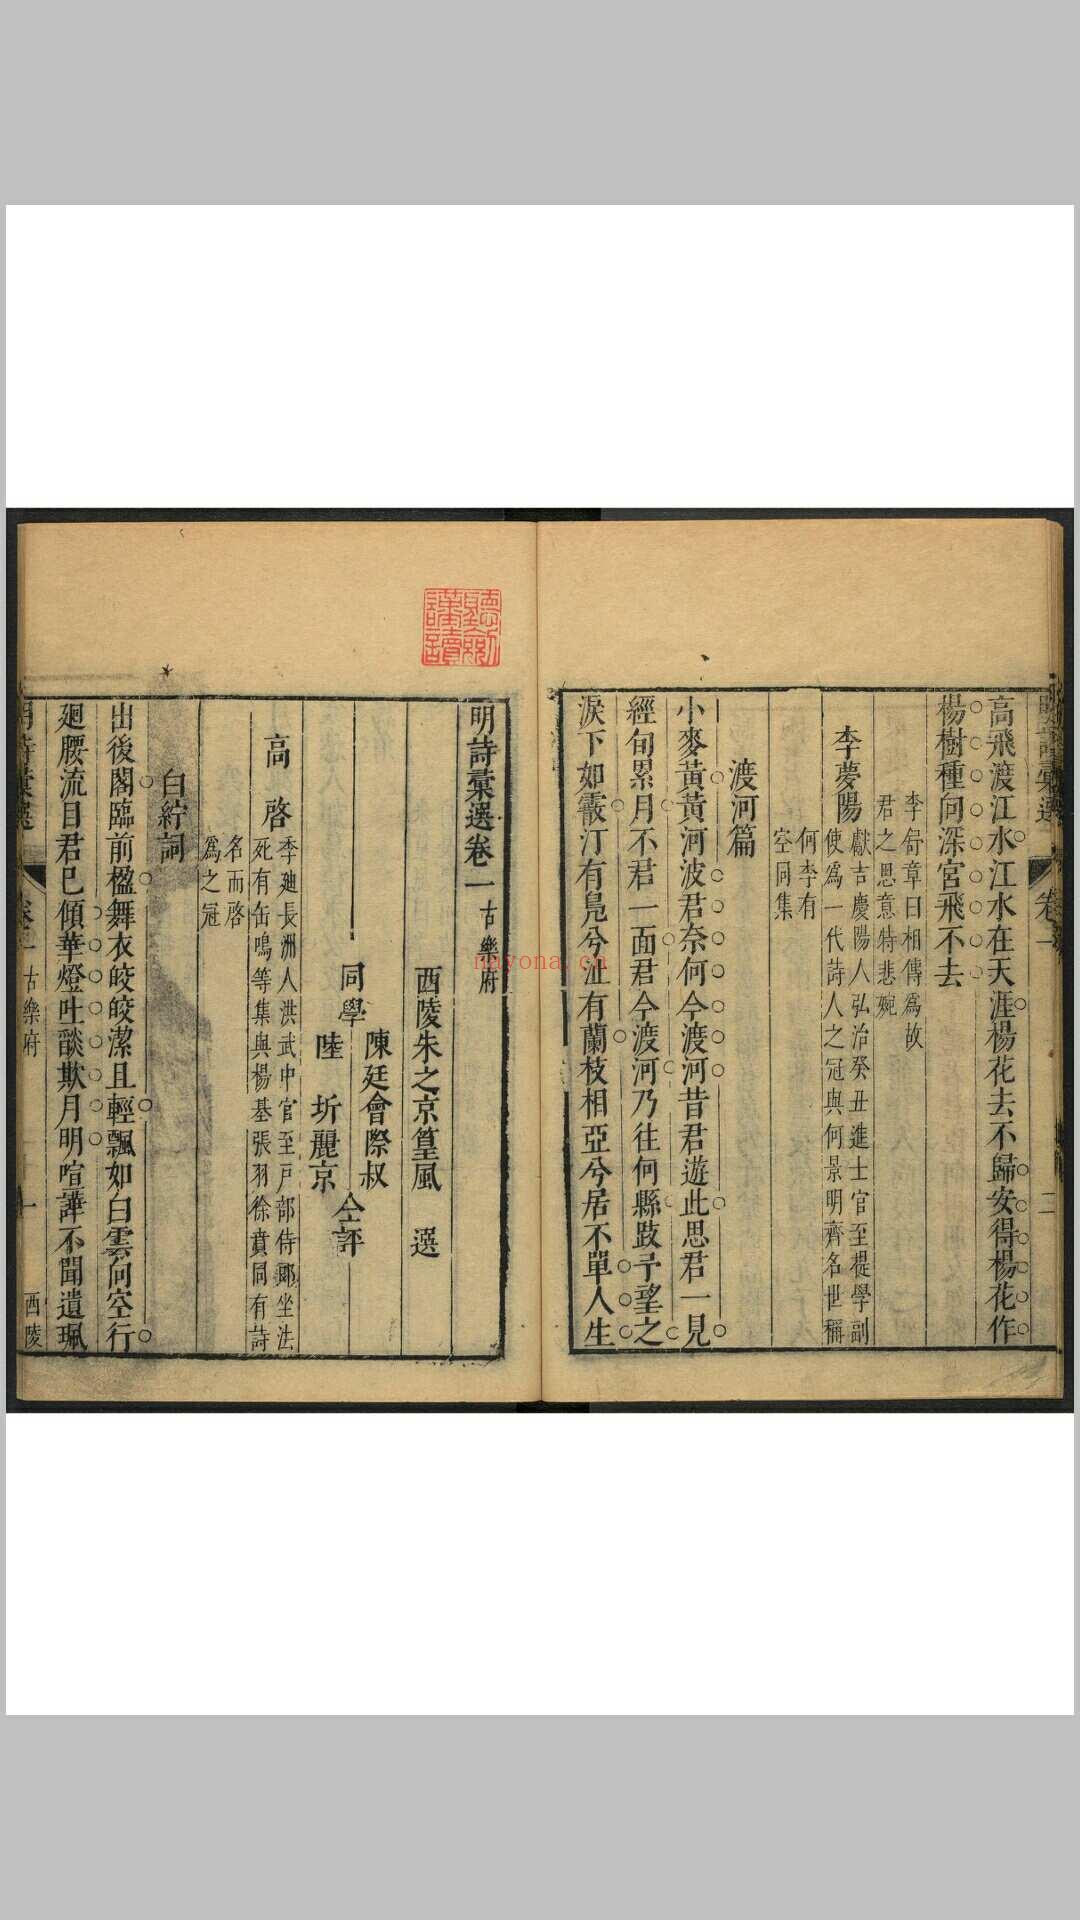 明詩彙選
卷一
二
高飛渡江水江水在天涯楊花去不歸安得楊花作
楊樹種向深宮飛不去
李舒章曰相傳為故
君之思意特悲婉
李夢陽
獻吉慶陽人弘治癸丑進士官至提學副
使為一代詩人之冠與何景明齊名世稱
何李有
空同集
渡河篇
小麥黃黃河波君奈何今渡河昔君遊此思君一見
經旬累月不君一面君今渡河乃往何縣跂予望之
淚下如霰汀有鳧兮沚有蘭枝相亞兮居不單人生
明詩彙選卷一
古樂府
西陵朱之京篁風 選
同學
陳廷會際叔
陸圻麗京
仝評
高啓
季迪長洲人洪武中官至戸部侍郎坐法
死有缶鳴等集與楊基張羽徐賁同有詩
名而啓
爲之冠
白紵詞
出後閣臨前楹舞衣皎皎潔且輕飄如白雲向空行
廻腰流目君已傾華燈吐燄欺月明喧譁不聞遺珮
明詩彙選
卷一
古樂府
一
西陵
nayona.cn